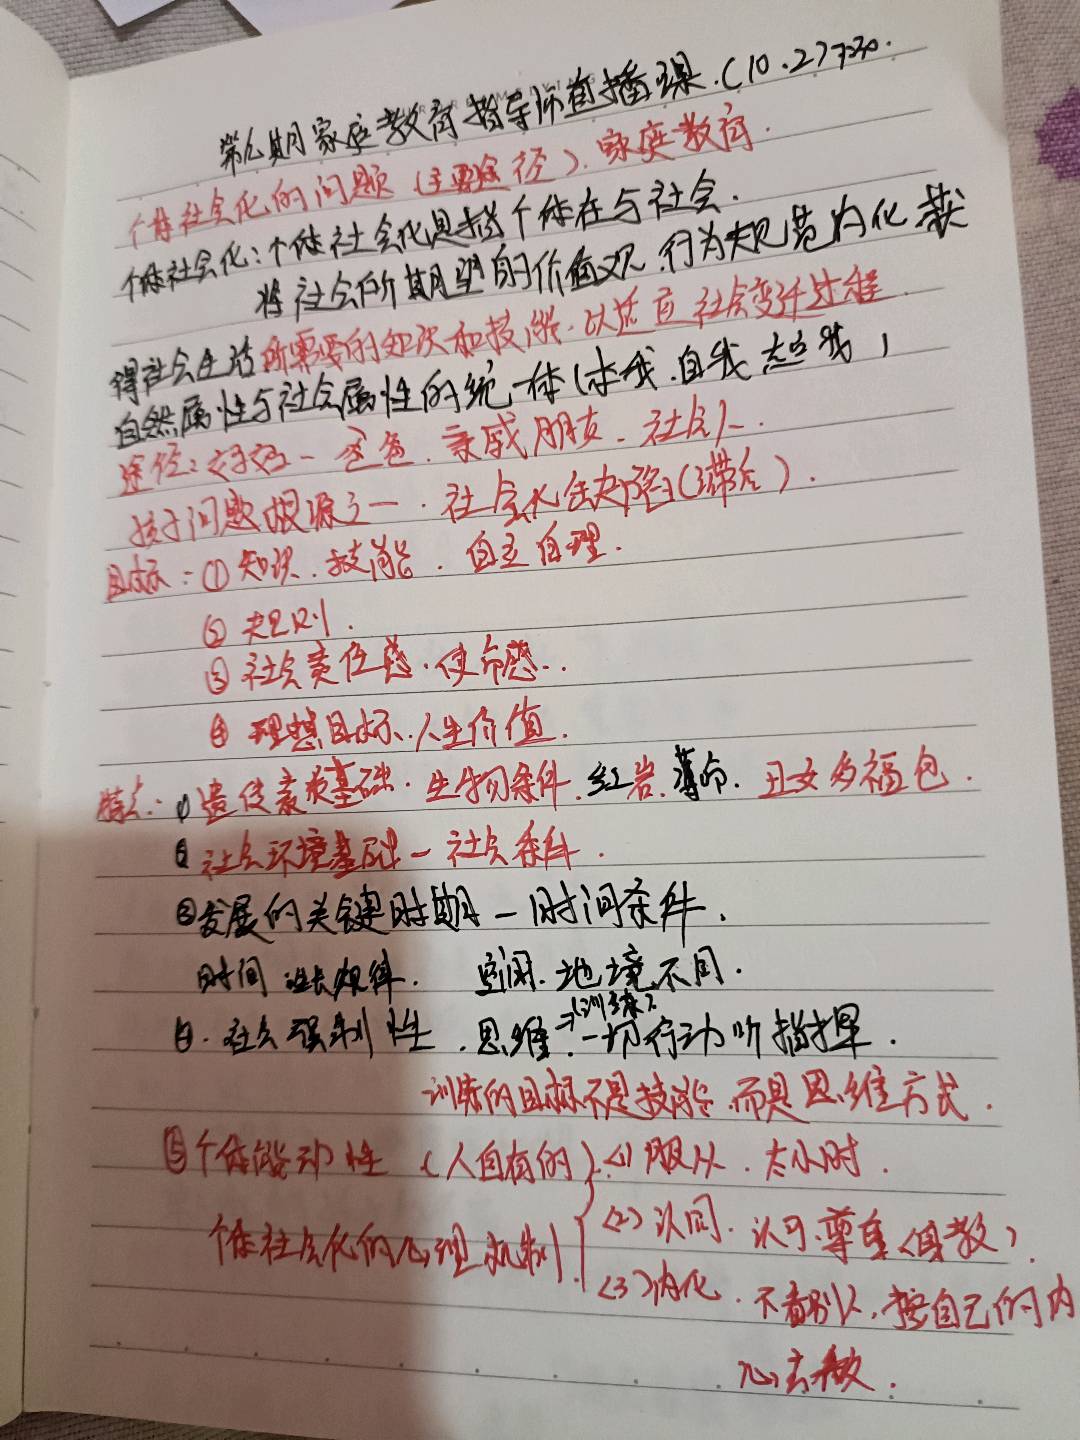 第九期家庭教育指导师直播课.(10.27 7:30.
个体社会化的问题(主要途径).家庭教育.
个体社会化:个体社会化是指个体在与社会.
将社会所期望的价值观.行为规范内化获
得社会生活所需要的知识和技能.以适应社会变迁过程.
自然属性与社会属性的统一体(本我.自我 超我)
途径:妈妈-爸爸.亲戚朋友-社会人.
孩子问题根源之一.社会化缺陷(滞后).
目标:①知识.技能.自立自理.
② 规则.
③ 社会责任感.使命感..
④ 理想目标.人生价值.
特点:① 遗传素质基础.生物条件.红岩.薄命.丑女多福包.
② 社会环境基础-社会条件.
③发展的关键时期-时间条件.
时间 规律. 空间.地境不同.
④.社会强制性.思维⇒(训练).一切行动听指挥.
训练的目标不是技能.而是思维方式.
⑤个体能动性(人自有的).(1)服从.太小时.
个体社会化的心理机制.
(2)认同.认可.尊重(身教).
(3)内化.不看别人,按自己的内
心去做.